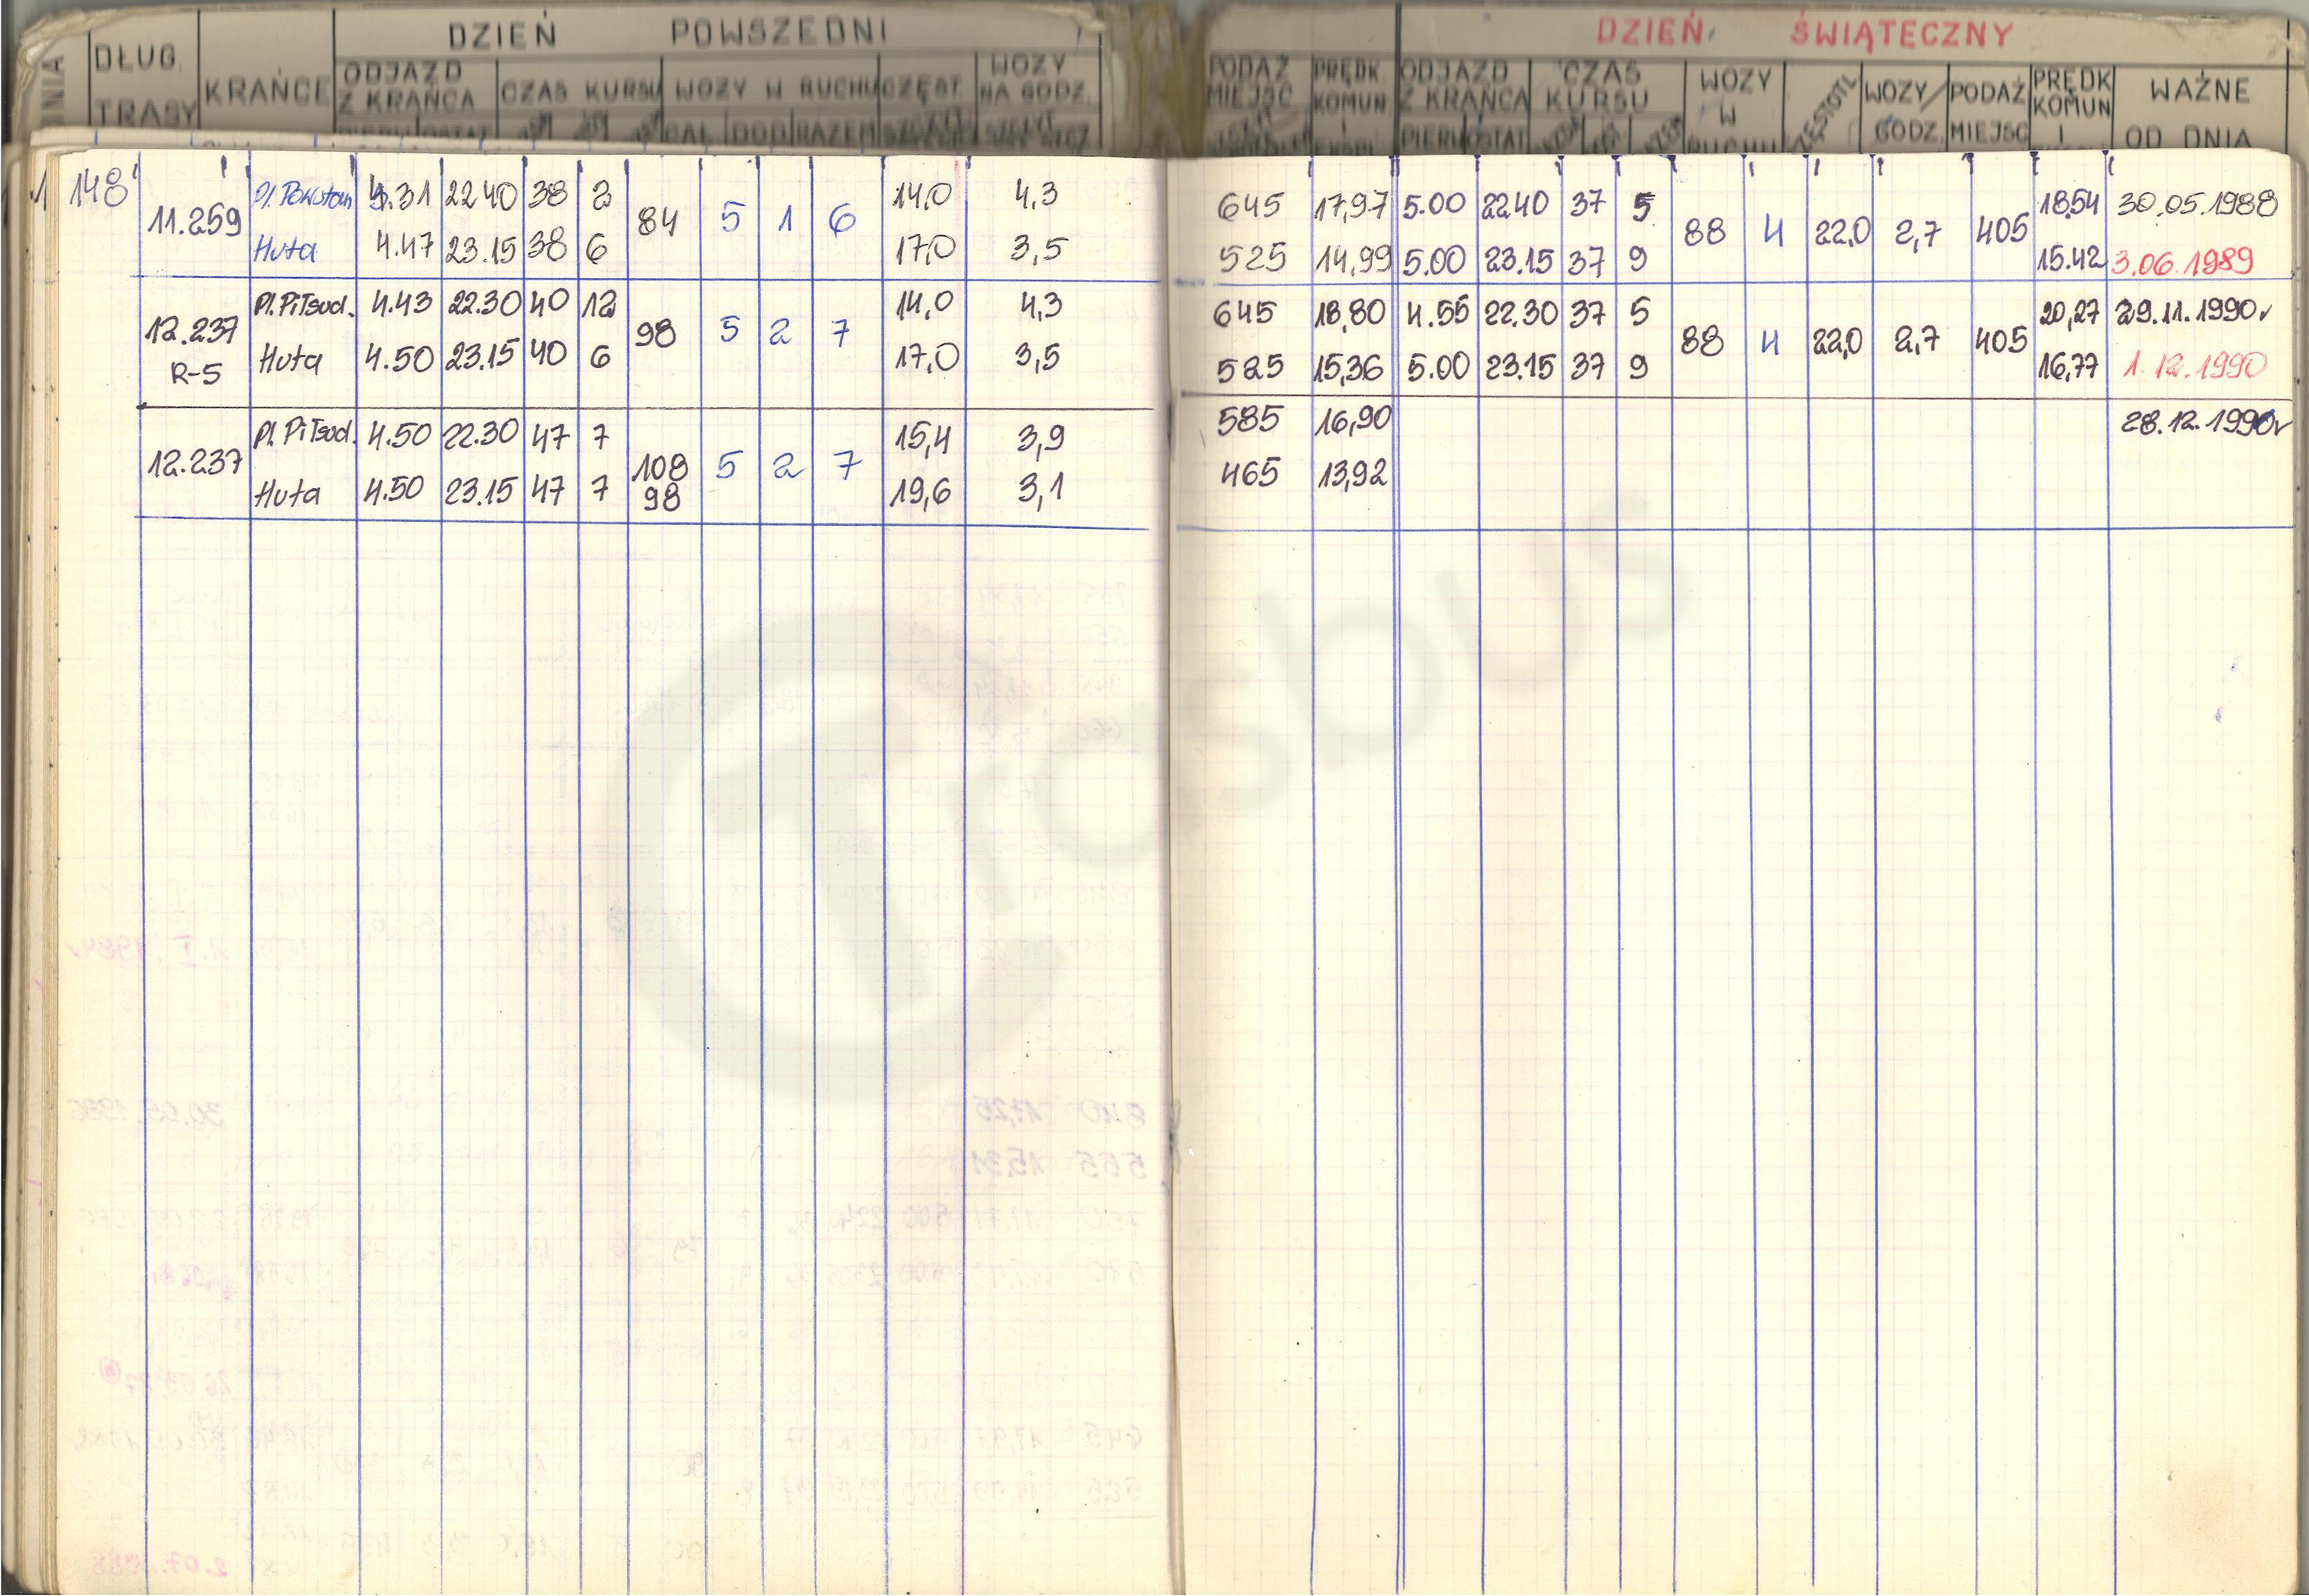 DZIEŃ POWSZEDNI DZIEŃ ŚWIĄTECZNY
DŁUG. TRASY KRAŃCE ODJAZD Z KRAŃCA CZAS KURSU WOZY W RUCHU CZĘST. WOZY NA GODZ.
PODAŻ MIEJSC PRĘDK. KOMUN I ODJAZD Z KRAŃCA CZAS KURSU WOZY W RUCHU WOZY/GODZ. PODAŻ MIEJSC PRĘDK KOMUN I WAŻNE OD DNIA
CAŁ DOD RAZEM
148
4.31 22.40 38 2 14,0 4,3 645 17,97 5.00 22.40 37 5 18.54 30.05.1988
11.259 84 5 1 6 88 4 22,0 2,7 405
Huta 4.47 23.15 38 6 17,0 3,5 525 14,99 5.00 23.15 37 9 15.42 3.06.1989
Pl. Piłsud. 4.43 22.30 40 12 14,0 4,3 645 18,80 4.55 22.30 37 5 20,27 29.11.1990r
12.237 98 5 2 7 88 4 22,0 2,7 405
R-5 Huta 4.50 23.15 40 6 17,0 3,5 525 15,36 5.00 23.15 37 9 16,77 1.12.1990
Pl. Piłsud. 4.50 22.30 47 7 15,4 3,9 585 16,90 28.12.1990r
12.237 108 5 2 7
Huta 4.50 23.15 47 7 98 19,6 3,1 465 13,92
Trasbus